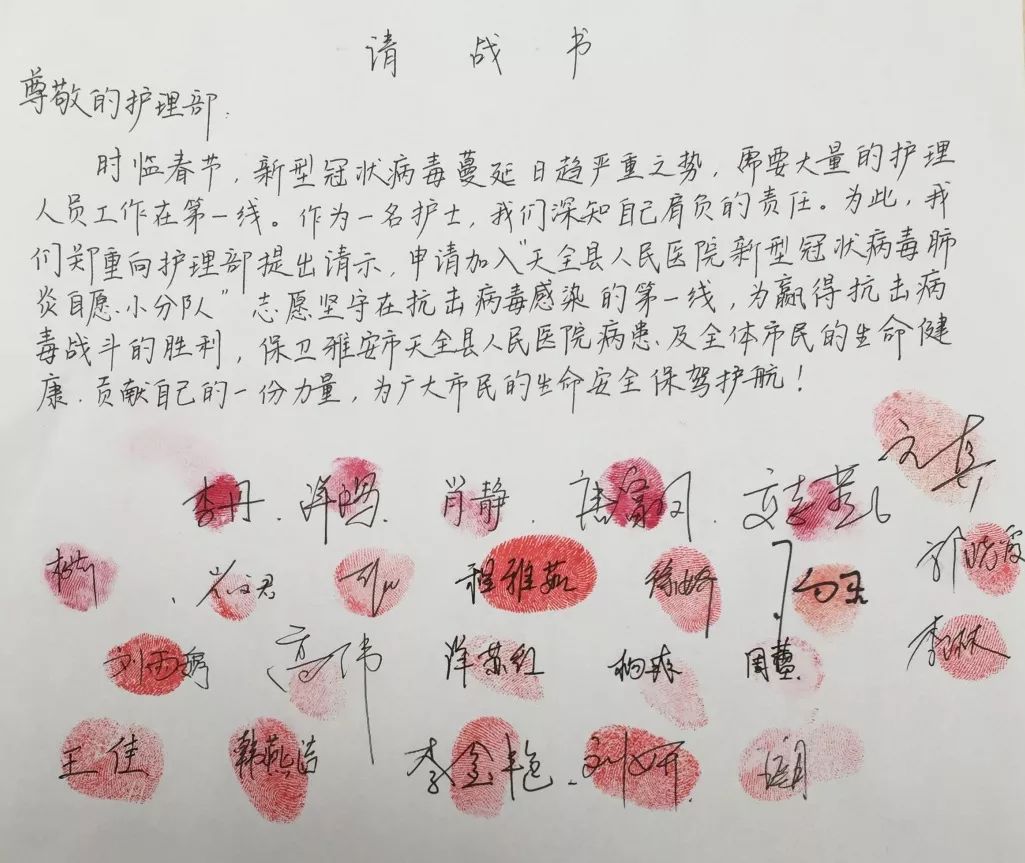 请战书
尊敬的护理部:
时临春节,新型冠状病毒蔓延日趋严重之势,需要大量的护理
人员工作在第一线。作为一名护士,我们深知自己肩负的责任。为此,我
们郑重向护理部提出请示,申请加入“天全县人民医院新型冠状病毒肺
炎自愿小分队”志愿坚守在抗击病毒感染的第一线,为赢得抗击病
毒战斗的胜利,保卫雅安市天全县人民医院病患及全体市民的生命健
康.贡献自己的一份力量,为广大市民的生命安全保驾护航!
文真
李丹.肖静.
程雅茹 郭晓霞
刘雨 高伟 杨 周 李
王佳 韩燕洁 李金艳.刘妍